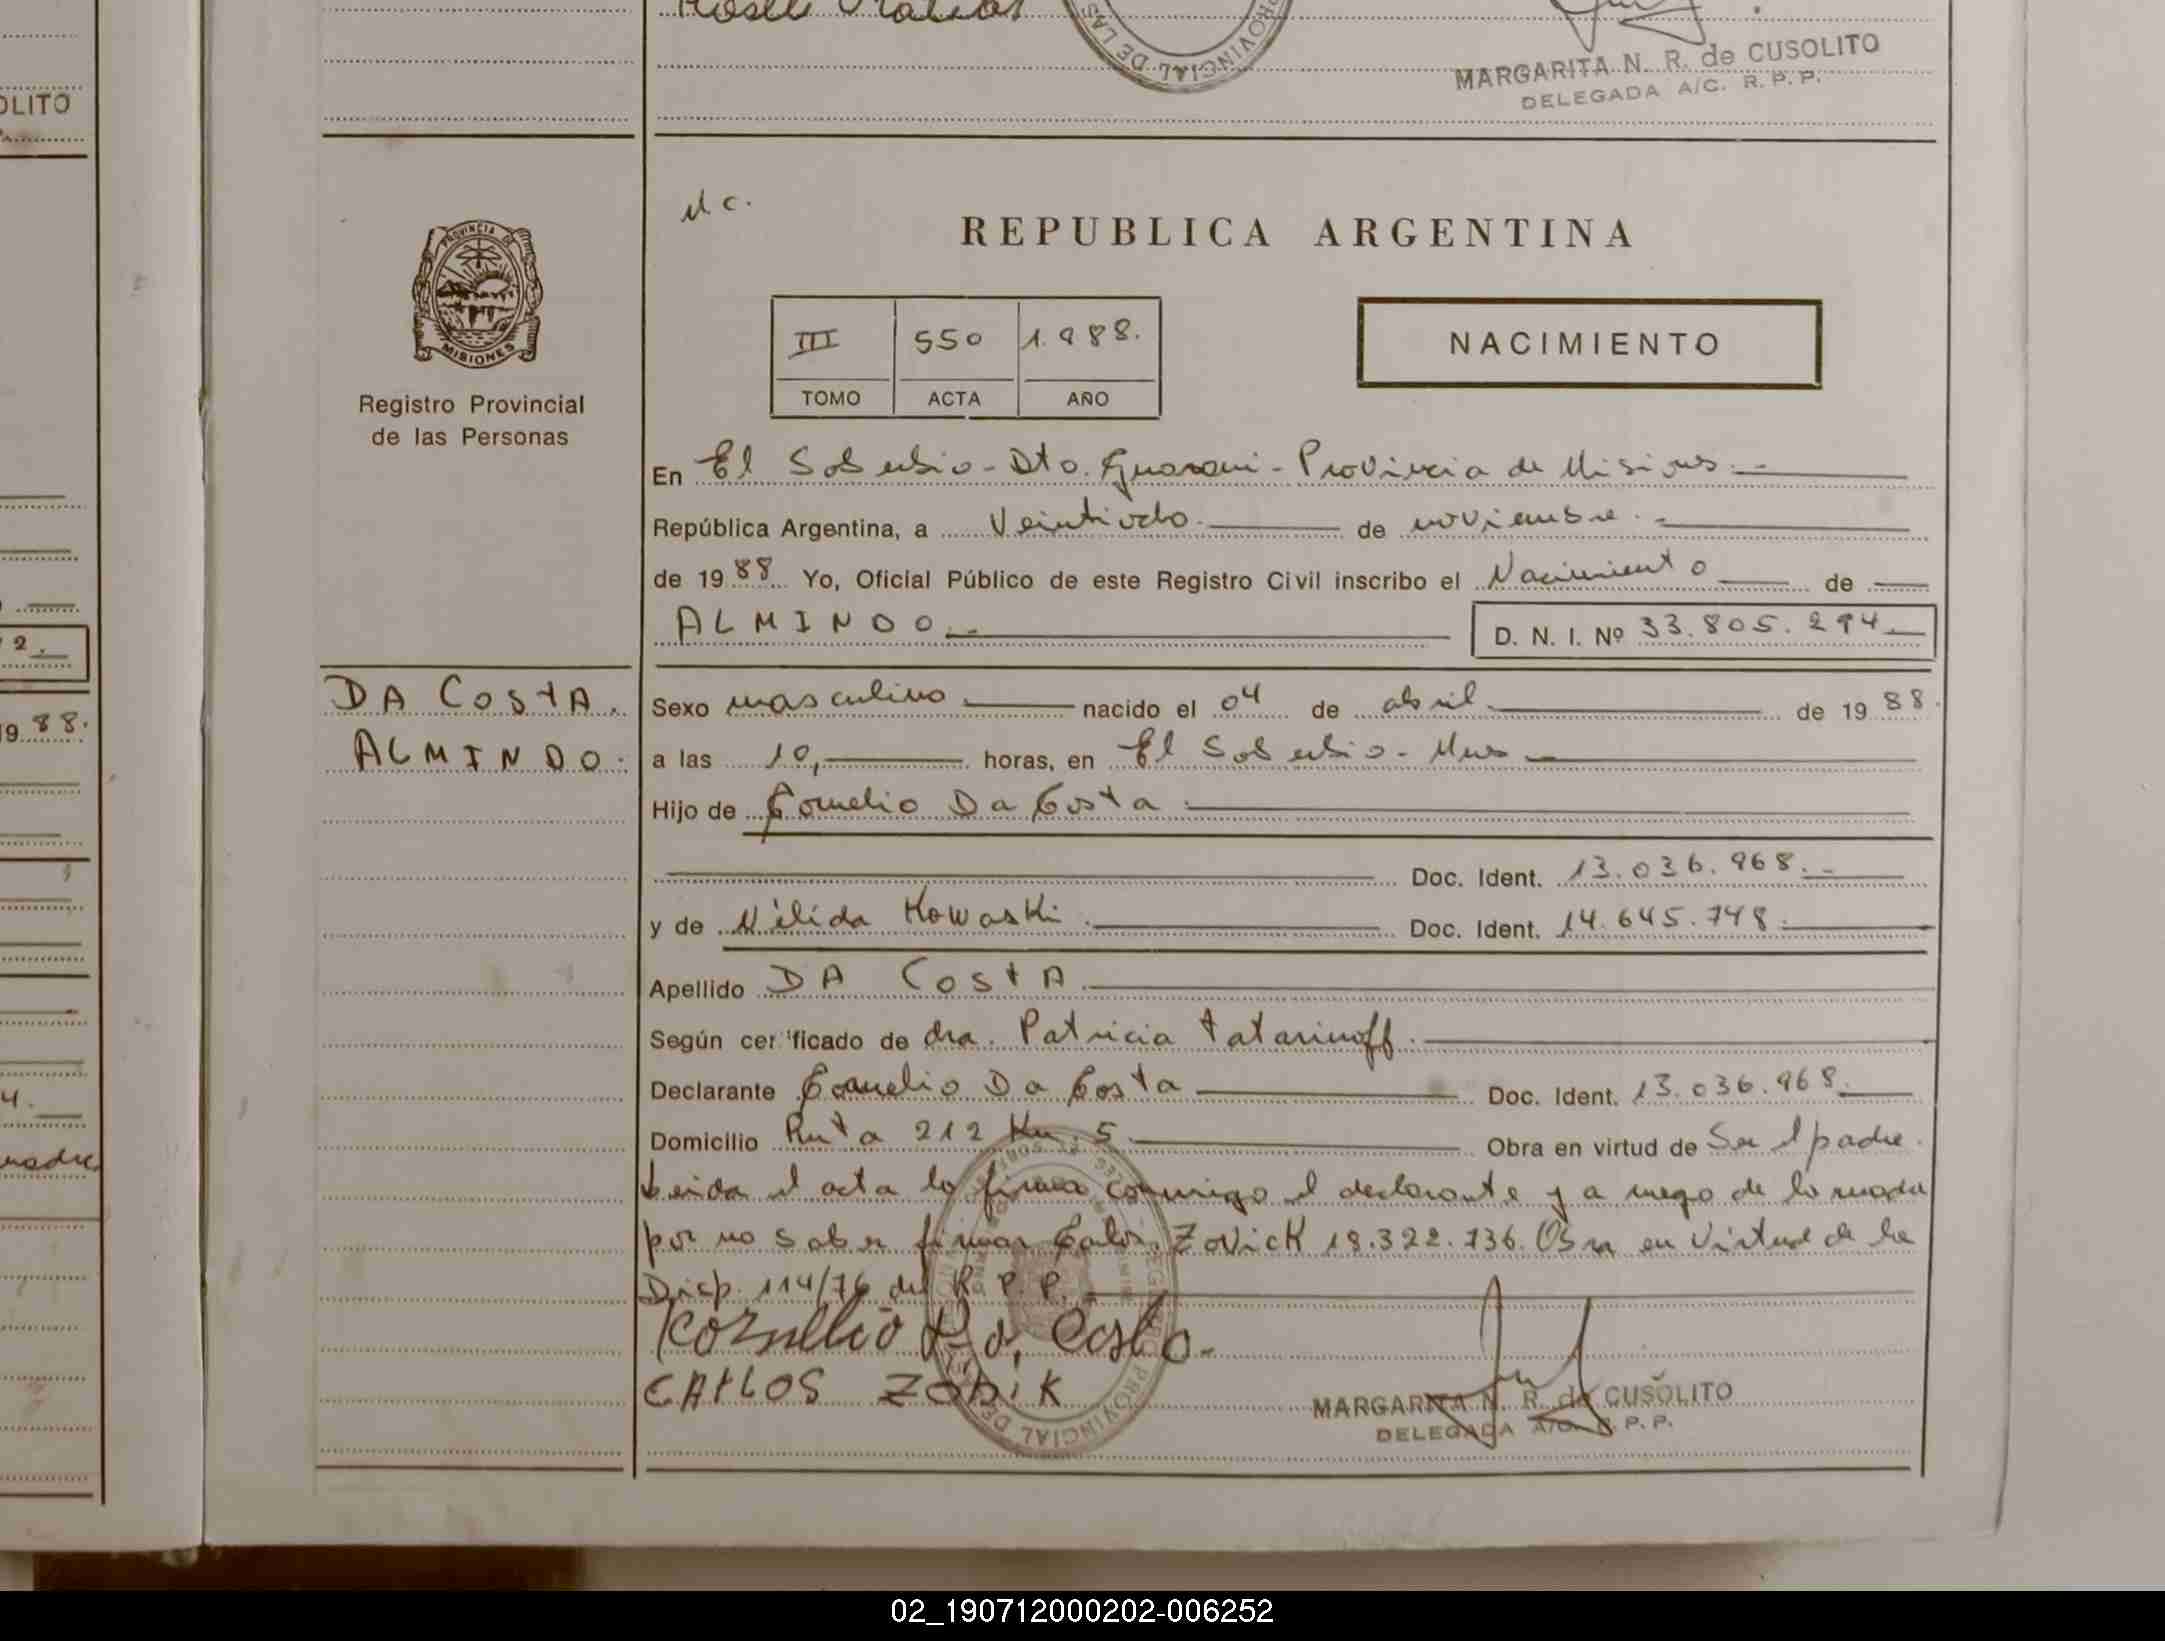 MARGARITA N. R. de CUSOLITO
DELEGADA A/C. R. P. P.
OLITO
PROVINCIAL DE LAS
PROVINCIA DE
MISIONES
Registro Provincial
de las Personas
REPUBLICA ARGENTINA
III 550 1.988.
TOMO ACTA AÑO
NACIMIENTO
En El Soberbio - Dto. Guarani - Provincia de Misiones.-
República Argentina, a Veintiocho. de noviembre.-
de 1988 Yo, Oficial Público de este Registro Civil inscribo el Nacimiento de
ALMINDO.- D. N. I. Nº 33.805.294
DA COSTA.
ALMINDO.
Sexo masculino nacido el 04 de abril de 1988.
a las 10, horas, en El Soberbio - Mnes
Hijo de Cornelio Da Costa
Doc. Ident. 13.036.968.-
y de Nélida Kowaski. Doc. Ident. 14.645.748.
Apellido DA COSTA
Según certificado de dra. Patricia Tatarinoff.
Declarante Cornelio Da Costa Doc. Ident. 13.036.968.
Domicilio Ruta 212 Km. 5 Obra en virtud de Ser el padre.
Leida el acta la firma conmigo el declarante y a ruego de la madre
por no saber firmar Carlos Zovick 18.322.736. Obra en virtud de la
Disp. 114/76 del R. P. P.
Kornellio Da, Costa.
CARLOS ZOBIK
MARGARITA N. R. de CUSOLITO
DELEGADA A/C. R. P. P.
02_190712000202-006252